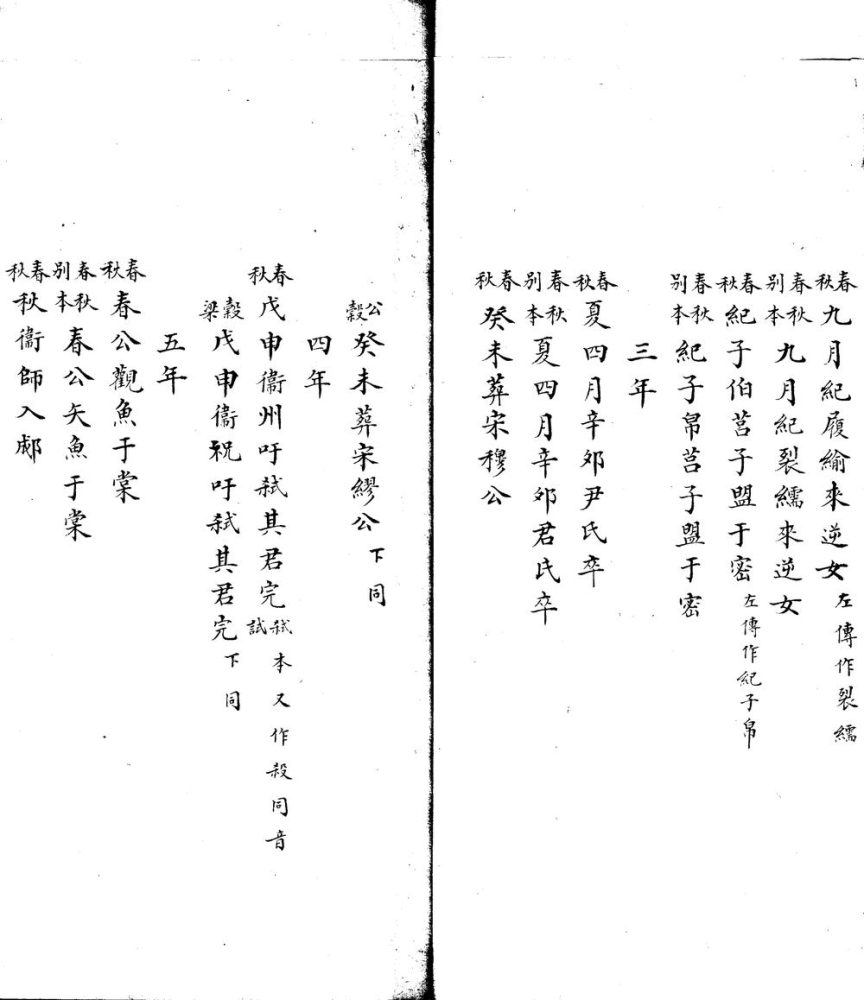 春秋九月紀履緰來逆女左傳作裂繻
春秋別本九月紀裂繻來逆女
春秋紀子伯莒子盟于密左傳作紀子帛
春秋別本紀子帛莒子盟于密
三年
春秋夏四月辛卯尹氏卒
春秋別本夏四月辛卯君氏卒
春秋癸未葬宋穆公
公穀癸未葬宋繆公下同
四年
春秋戊申衞州吁弒其君完弒試本又作殺同音
穀梁戊申衞祝吁弒其君完下同
五年
春秋春公觀魚于棠
春秋別本春公矢魚于棠
春秋秋衞師入郕